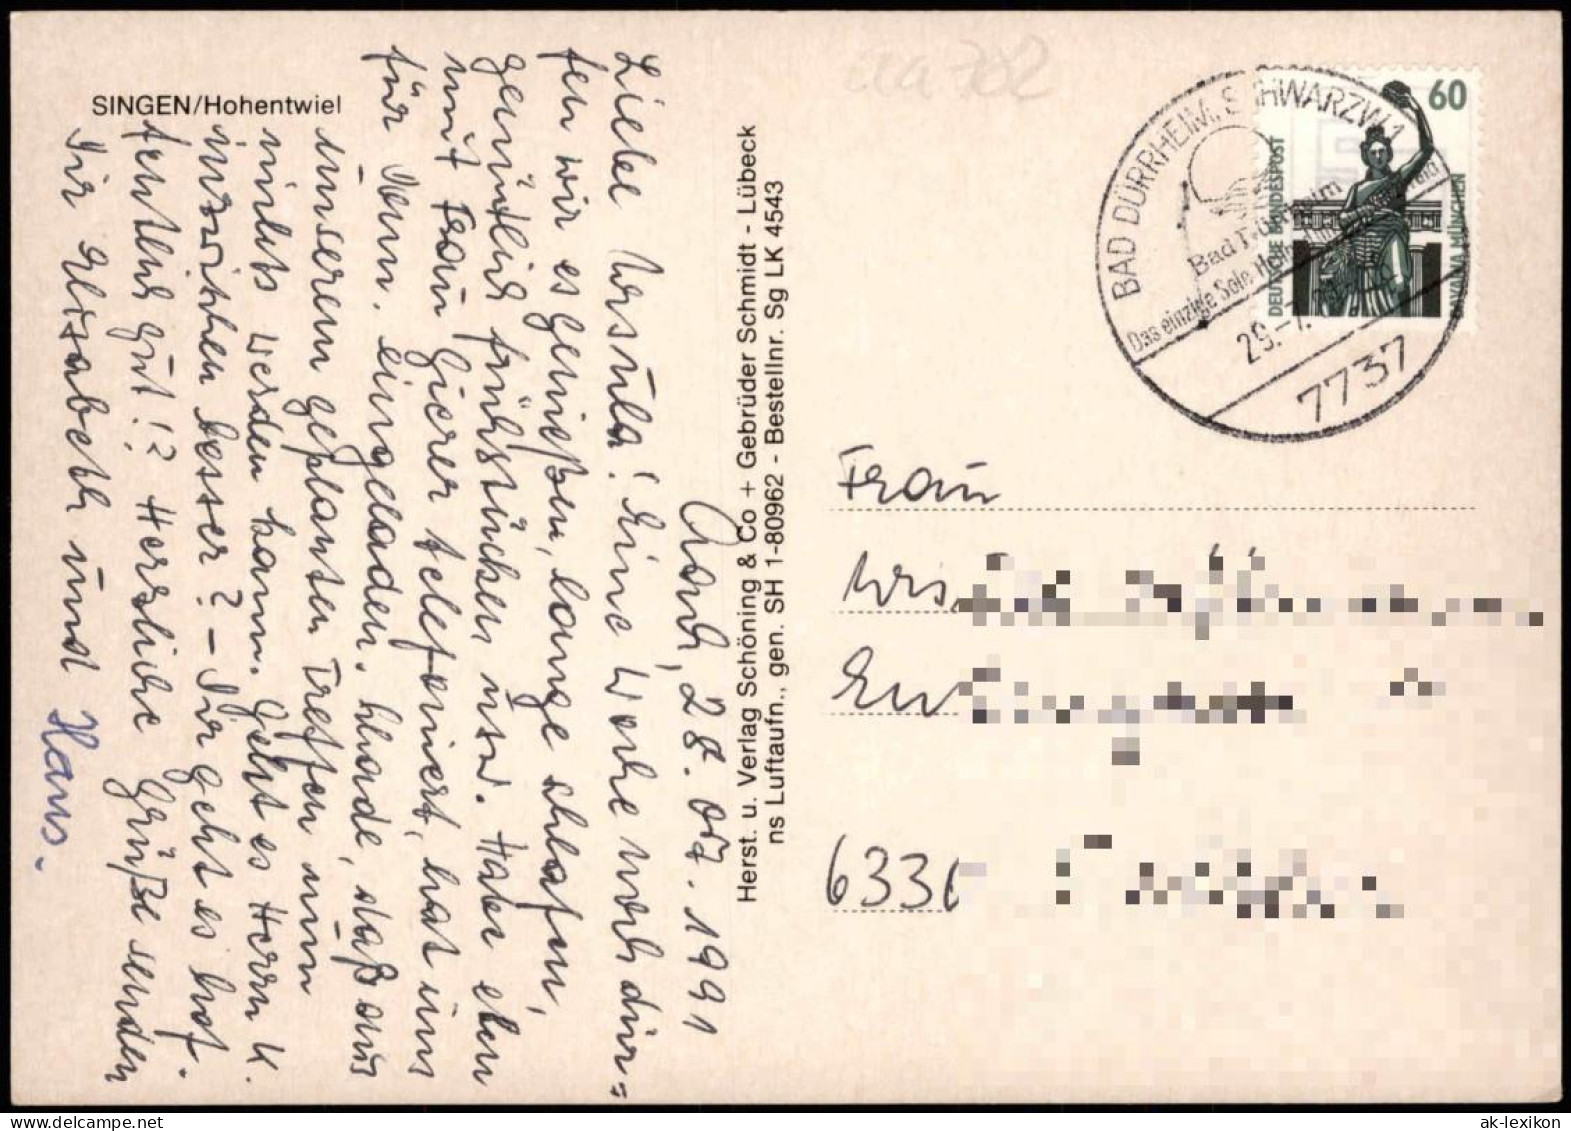 SINGEN/Hohentwiel
Aach, 28.07.1991
Liebe Ursula! Eine Woche noch dür=
fen wir es genießen, lange schlafen,
gemütlich frühstücken usw. Habe eben
mit Frau Gierer telefoniert, hat uns
für eingeladen. Schade, daß aus
unserem geplanten Treffen nun
nichts werden kann. Geht es Herrn K.
inzwischen besser? – Dir geht es hof-
fentlich gut!? Herzliche Grüße senden
Dir Elisabeth und Hans.
Herst. u. Verlag Schöning & Co + Gebrüder Schmidt - Lübeck
ns Luftaufn., gen. SH 1-80962 - Bestellnr. Sg LK 4543
60
DEUTSCHE BUNDESPOST
BAVARIA MÜNCHEN
BAD DÜRRHEIM, SCHWARZW 1
Bad Dürrheim
Das einzige Sole-Heil
29.-7.
7737
Frau
Urs
6330
ak-lexikon